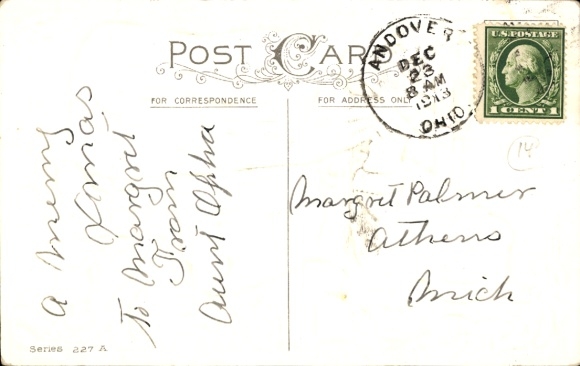 POST CARD
FOR CORRESPONDENCE
FOR ADDRESS ONLY
ANDOVER
DEC
23
8 AM
1913
OHIO
U.S. POSTAGE
1 CENT 1
14
A merry
Xmas
To Margrit
From
Aunt Alpha
Margrit Palmer
Athens
Mich
Series 227 A